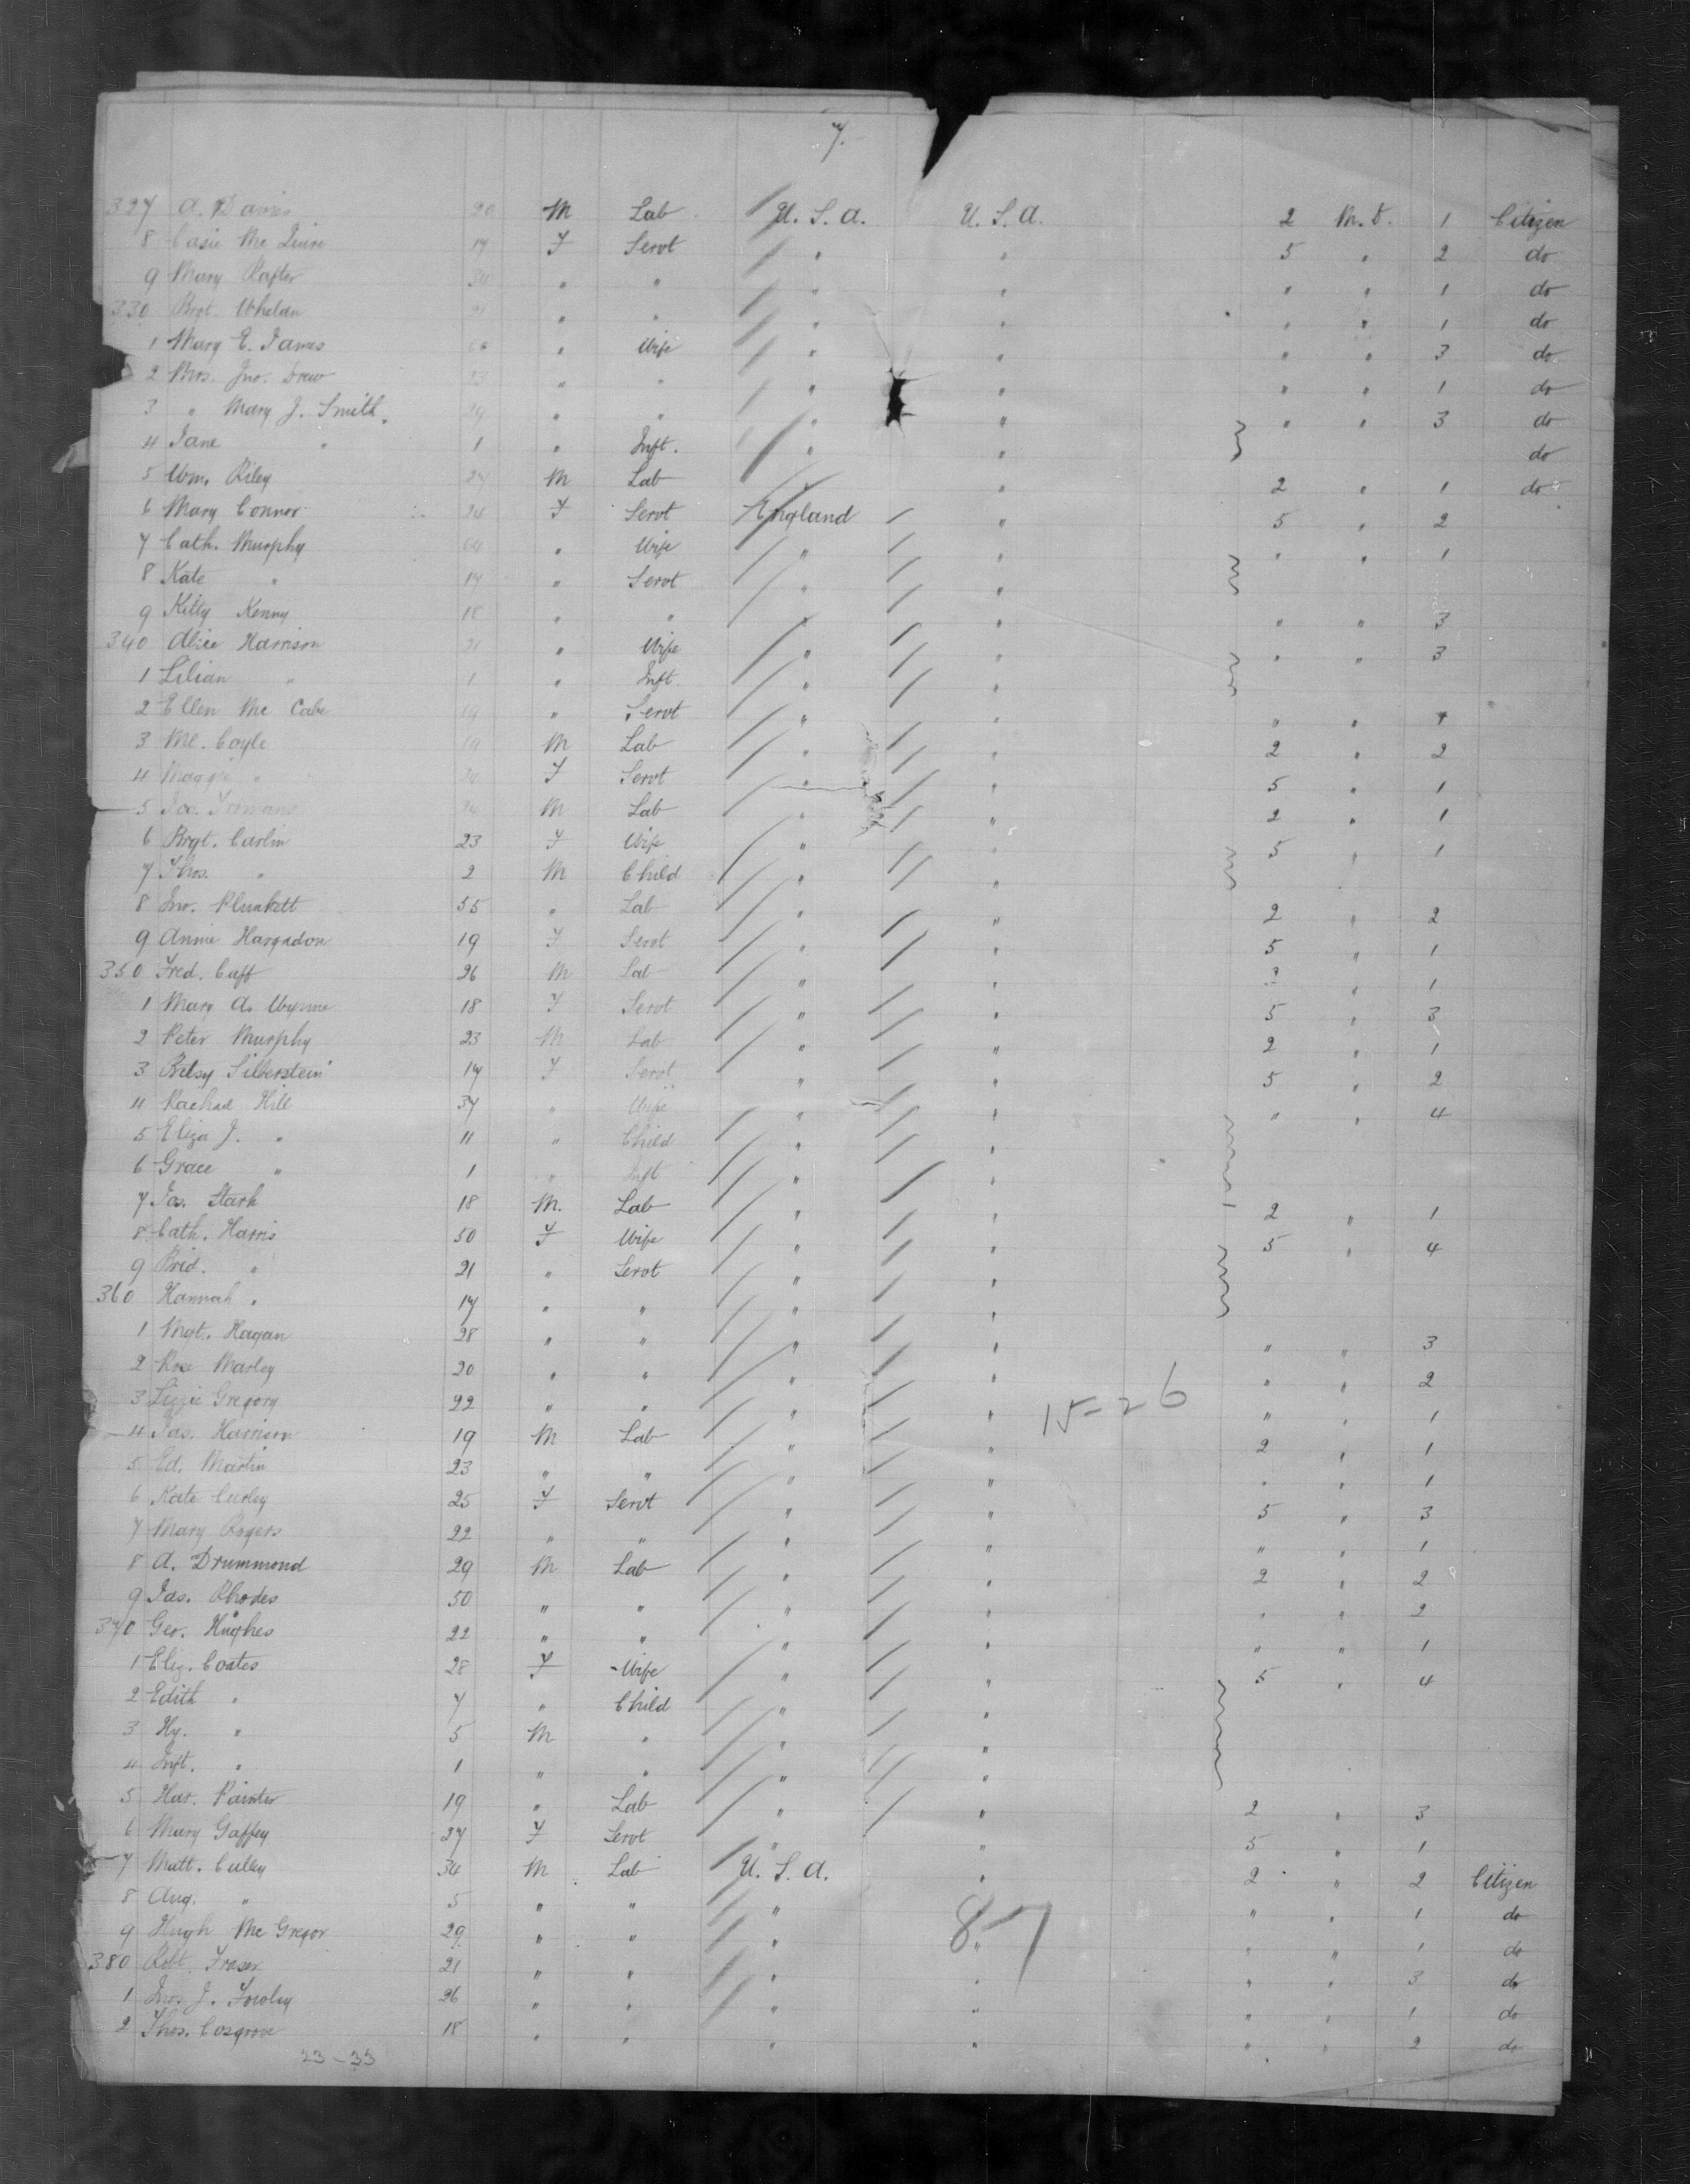 7.
327 A. Davies 20 M Lab U. S. A. U. S. A. 2 M. D. 1 Citizen
8 Casie Mc Quire 17 F Servt " " 5 " 2 do
9 Mary Rafter 30 " " " " " " 1 do
330 Brgt. Whelan 21 " " " " " " 1 do
1 Mary E. James " Wife " " " " 3 do
2 Mrs. Jno. Drew 23 " " " " " " 1 do
3 " Mary J. Smith. 29 " " " " " " 3 do
4 Jane " 1 " Inft. " " do
5 Wm. Riley 27 M Lab " " 2 " 1 do
6 Mary Connor 24 F Servt England " 5 " 2
7 Cath. Murphy 64 " Wife " " " " 1
8 Kate " 17 " Servt " "
9 Kitty Kenny 18 " " " " " " 3
340 Alice Harrison 21 " Wife " " " " 3
1 Lilian " 1 " Inft. " "
2 Ellen Mc Cabe 19 " Servt " " " " 1
3 Ml. Coyle 19 M Lab " " 2 " 2
4 Maggie " F Servt " " 5 " 1
5 M Lab " " 2 " 1
6 Brgt. Carlin 23 F Wife " " 5 " 1
7 Thos. " 2 M Child " "
8 Jno. Plunkett 55 " Lab " " 2 " 2
9 Annie Hargadon 19 F Servt " " 5 " 1
350 Fred. Cuff 26 M Lab " " 2 " 1
1 Mary A. Wynne 18 F Servt " " 5 " 3
2 Peter Murphy 23 M Lab " " 2 " 1
3 Betsy Silberstein 17 F Servt " " 5 " 2
4 Rachael Hill 37 " Wife " " " " 4
5 Eliza J. " 11 " Child " "
6 Grace " 1 " Inft " "
7 Jas. Stark 18 M. Lab " " 2 " 1
8 Cath. Harris 50 F Wife " " 5 " 4
9 Brid. " 21 " Servt " "
360 Hannah " 17 " " " "
1 Mgt. Hagan 28 " " " " " " 3
2 Rose Marley 20 " " " " " " 2
3 Lizzie Gregory 22 " " " " 15-26 " " 1
4 Jas. Harrison 19 M Lab " " 2 " 1
5 Ed. Martin 23 " " " " " " 1
6 Kate Curley 25 F Servt " " 5 " 3
7 Mary Rogers 22 " " " " " " 1
8 A. Drummond 29 M Lab " " 2 " 2
9 Jas. Rhodes 50 " " " " " " 2
370 Geo. Hughes 22 " " " " " " 1
1 Eliz. Coates 28 F Wife " " 5 " 4
2 Edith " 7 " Child " "
3 Hy. " 5 M " " "
4 Inft. " 1 " " " "
5 Har. Painter 19 " Lab " " 2 " 3
6 Mary Gaffey 27 F Servt " " 5 " 1
7 Matt. Culley 34 M Lab U. S. A. " 2 " 2 Citizen
8 Aug. " 5 " " " " " 1 do
9 Hugh Mc Gregor 29 " " " 8-7 " " " 1 do
380 Robt. Fraser 21 " " " " " " 3 do
1 Jno. J. Fowley 26 " " " " " " 1 do
2 Thos. Cosgrove 18 " " " " " " 2 do
23-33